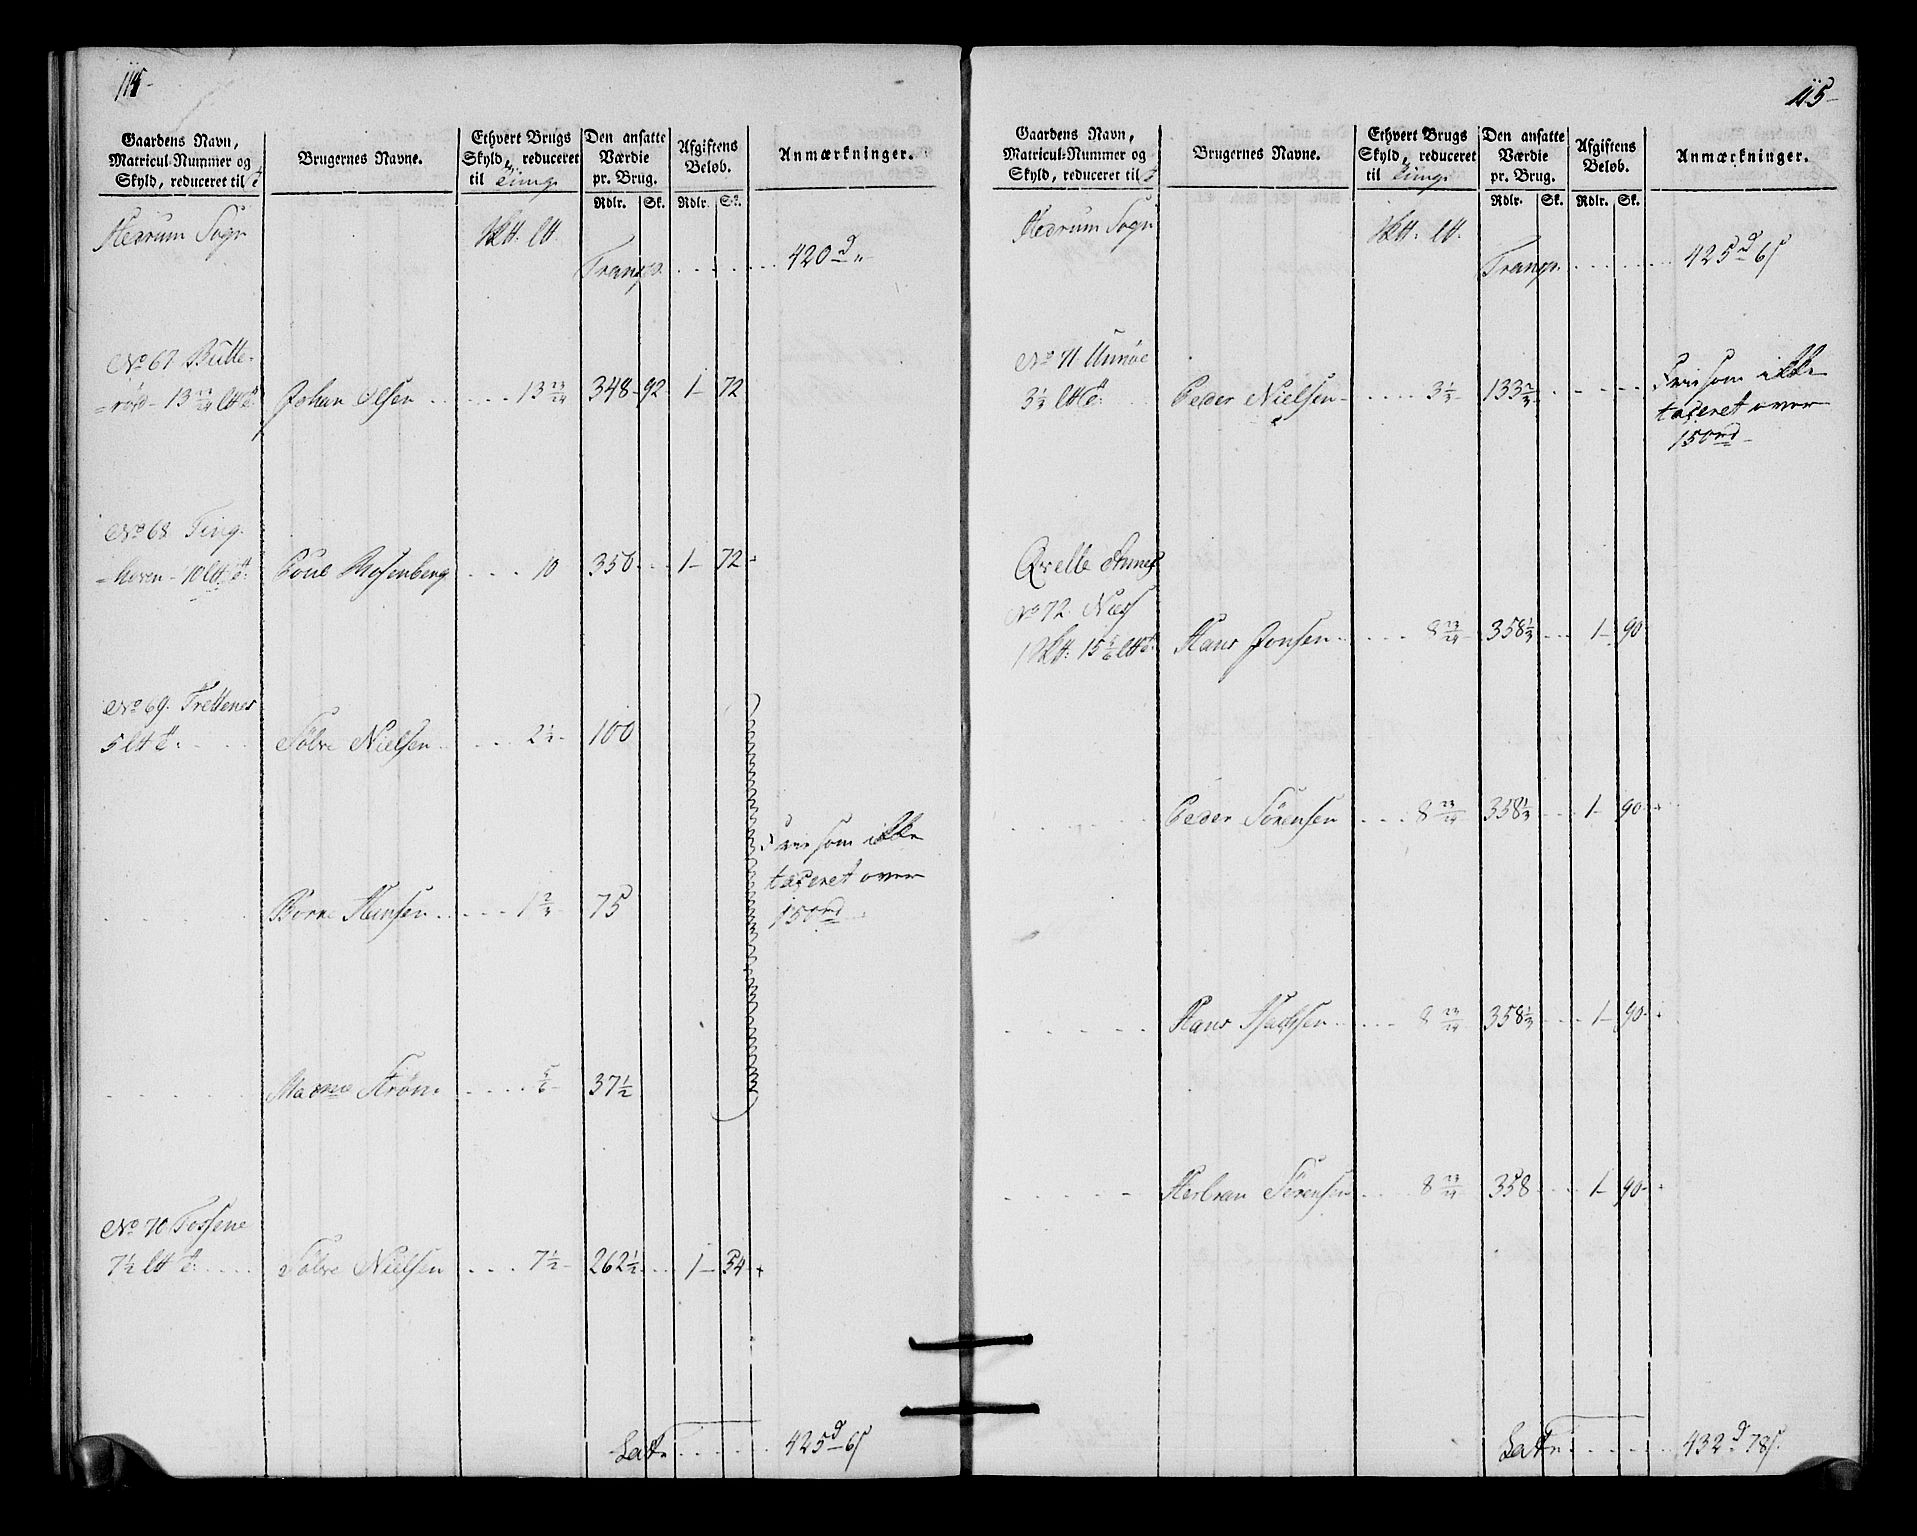 114-
Gaardens Navn,
Matricul-Nummer og
Skyld, reduceret til
Brugernes Navne.
Ethvert Brugs
Skyld, reduceret
til Tung.
Den ansatte
Værdie
pr. Brug.
Rdlr. Sk.
Afgiftens
Beløb.
Rdlr. Sk.
Anmærkninger.
Hedrum Sogn
Transp. . . . . . . 420 d "
No 67 Butte-
=rød - 13 23/24 lttt: Johan Olsen . . . . . . 13 23/24 348 - 92 1 - 72
No 68 Ting-
=hoven - 10 lttt: Poul Rosenberg . . . 10 350 . . 1 - 72
No 69. Trettenes
5 lttt. . . . Tolve Nielsen . . . . 2 1/2 - 100
Frie som ikke
taxeret over
150 rd
Borre Hansen . . . . . 1 2/3 - 75
Madme Strøm . . . . . 5/6 - 37 1/2
No 70 Tossene
7 1/2 lttt: . . . . Tolve Nielsen . . . 7 1/2 - 262 1/2 . . 1 - 54
Latr. . . . . . . 425 d 6 s
115-
Gaardens Navn,
Matricul-Nummer og
Skyld, reduceret til
Brugernes Navne.
Ethvert Brugs
Skyld, reduceret
til Tung.
Den ansatte
Værdie
pr. Brug.
Rdlr. Sk.
Afgiftens
Beløb.
Rdlr. Sk.
Anmærkninger.
Hedrum Sogn
Transp. . . . . . . 425 d 6 s
No 71 Unnøe
3 1/3 lttt: Peder Nielsen - . . . . 3 1/3 - 133 2/3 - - - -
Frie som ikke
taxeret over
150 rd -
Qvelle Annex
No 72. Næss
15 5/6 lttt: Hans Jonsen . . . . . 8 23/24 - 358 1/3 . . . 1 - 90
Peder Sörensen . . . 8 23/24 358 1/3 . . . 1 - 90 -
Hans Isachsen . . . . 8 23/24 358 1/3 . . . 1 - 90 -
Herbran Sörensen . . . 8 23/24 358 . . . 1 - 90 -
Latr. . . . . . . 432 d 78 s.